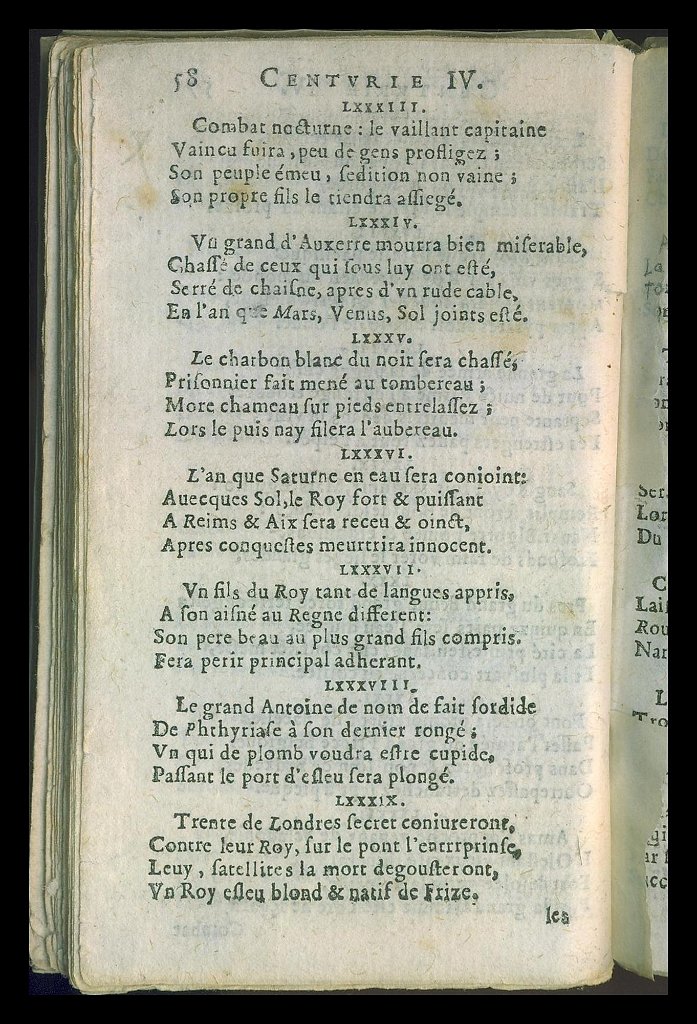 58 CENTVRIE IV.
LXXXIII.
Combat nocturne : le vaillant capitaine
Vaincu fuira, peu de gens profligez ;
Son peuple émeu, ſedition non vaine ;
Son propre fils le tiendra aſſiegé.
LXXXIV.
Vn grand d'Auxerre mourra bien miſerable,
Chaſſé de ceux qui ſous luy ont eſté,
Serré de chaiſne, apres d'vn rude cable,
En l'an que Mars, Venus, Sol joints eſté.
LXXXV.
Le charbon blanc du noir ſera chaſſé,
Priſonnier fait mené au tombereau ;
More chameau ſur pieds entrelaſſez ;
Lors le puis nay filera l'aubereau.
LXXXVI.
L'an que Saturne en eau ſera conioint:
Auecques Sol, le Roy fort & puiſſant
A Reims & Aix ſera receu & oinct,
Apres conqueſtes meurtrira innocent.
LXXXVII.
Vn fils du Roy tant de langues appris,
A ſon aiſné au Regne different:
Son pere beau au plus grand fils compris.
Fera perir principal adherant.
LXXXVIII.
Le grand Antoine de nom de fait ſordide
De Phthyriaſe à ſon dernier rongé ;
Vn qui de plomb voudra eſtre cupide,
Paſſant le port d'eſleu ſera plongé.
LXXXIX.
Trente de Londres ſecret coniureront,
Contre leur Roy, ſur le pont l'entrrprinſe,
Leuy, ſatellites la mort degouſteront,
Vn Roy eſleu blond & natif de Frize.
les
La
Ser
Lor
Du
C
Laiſ
Rou
Nar
L
Tro